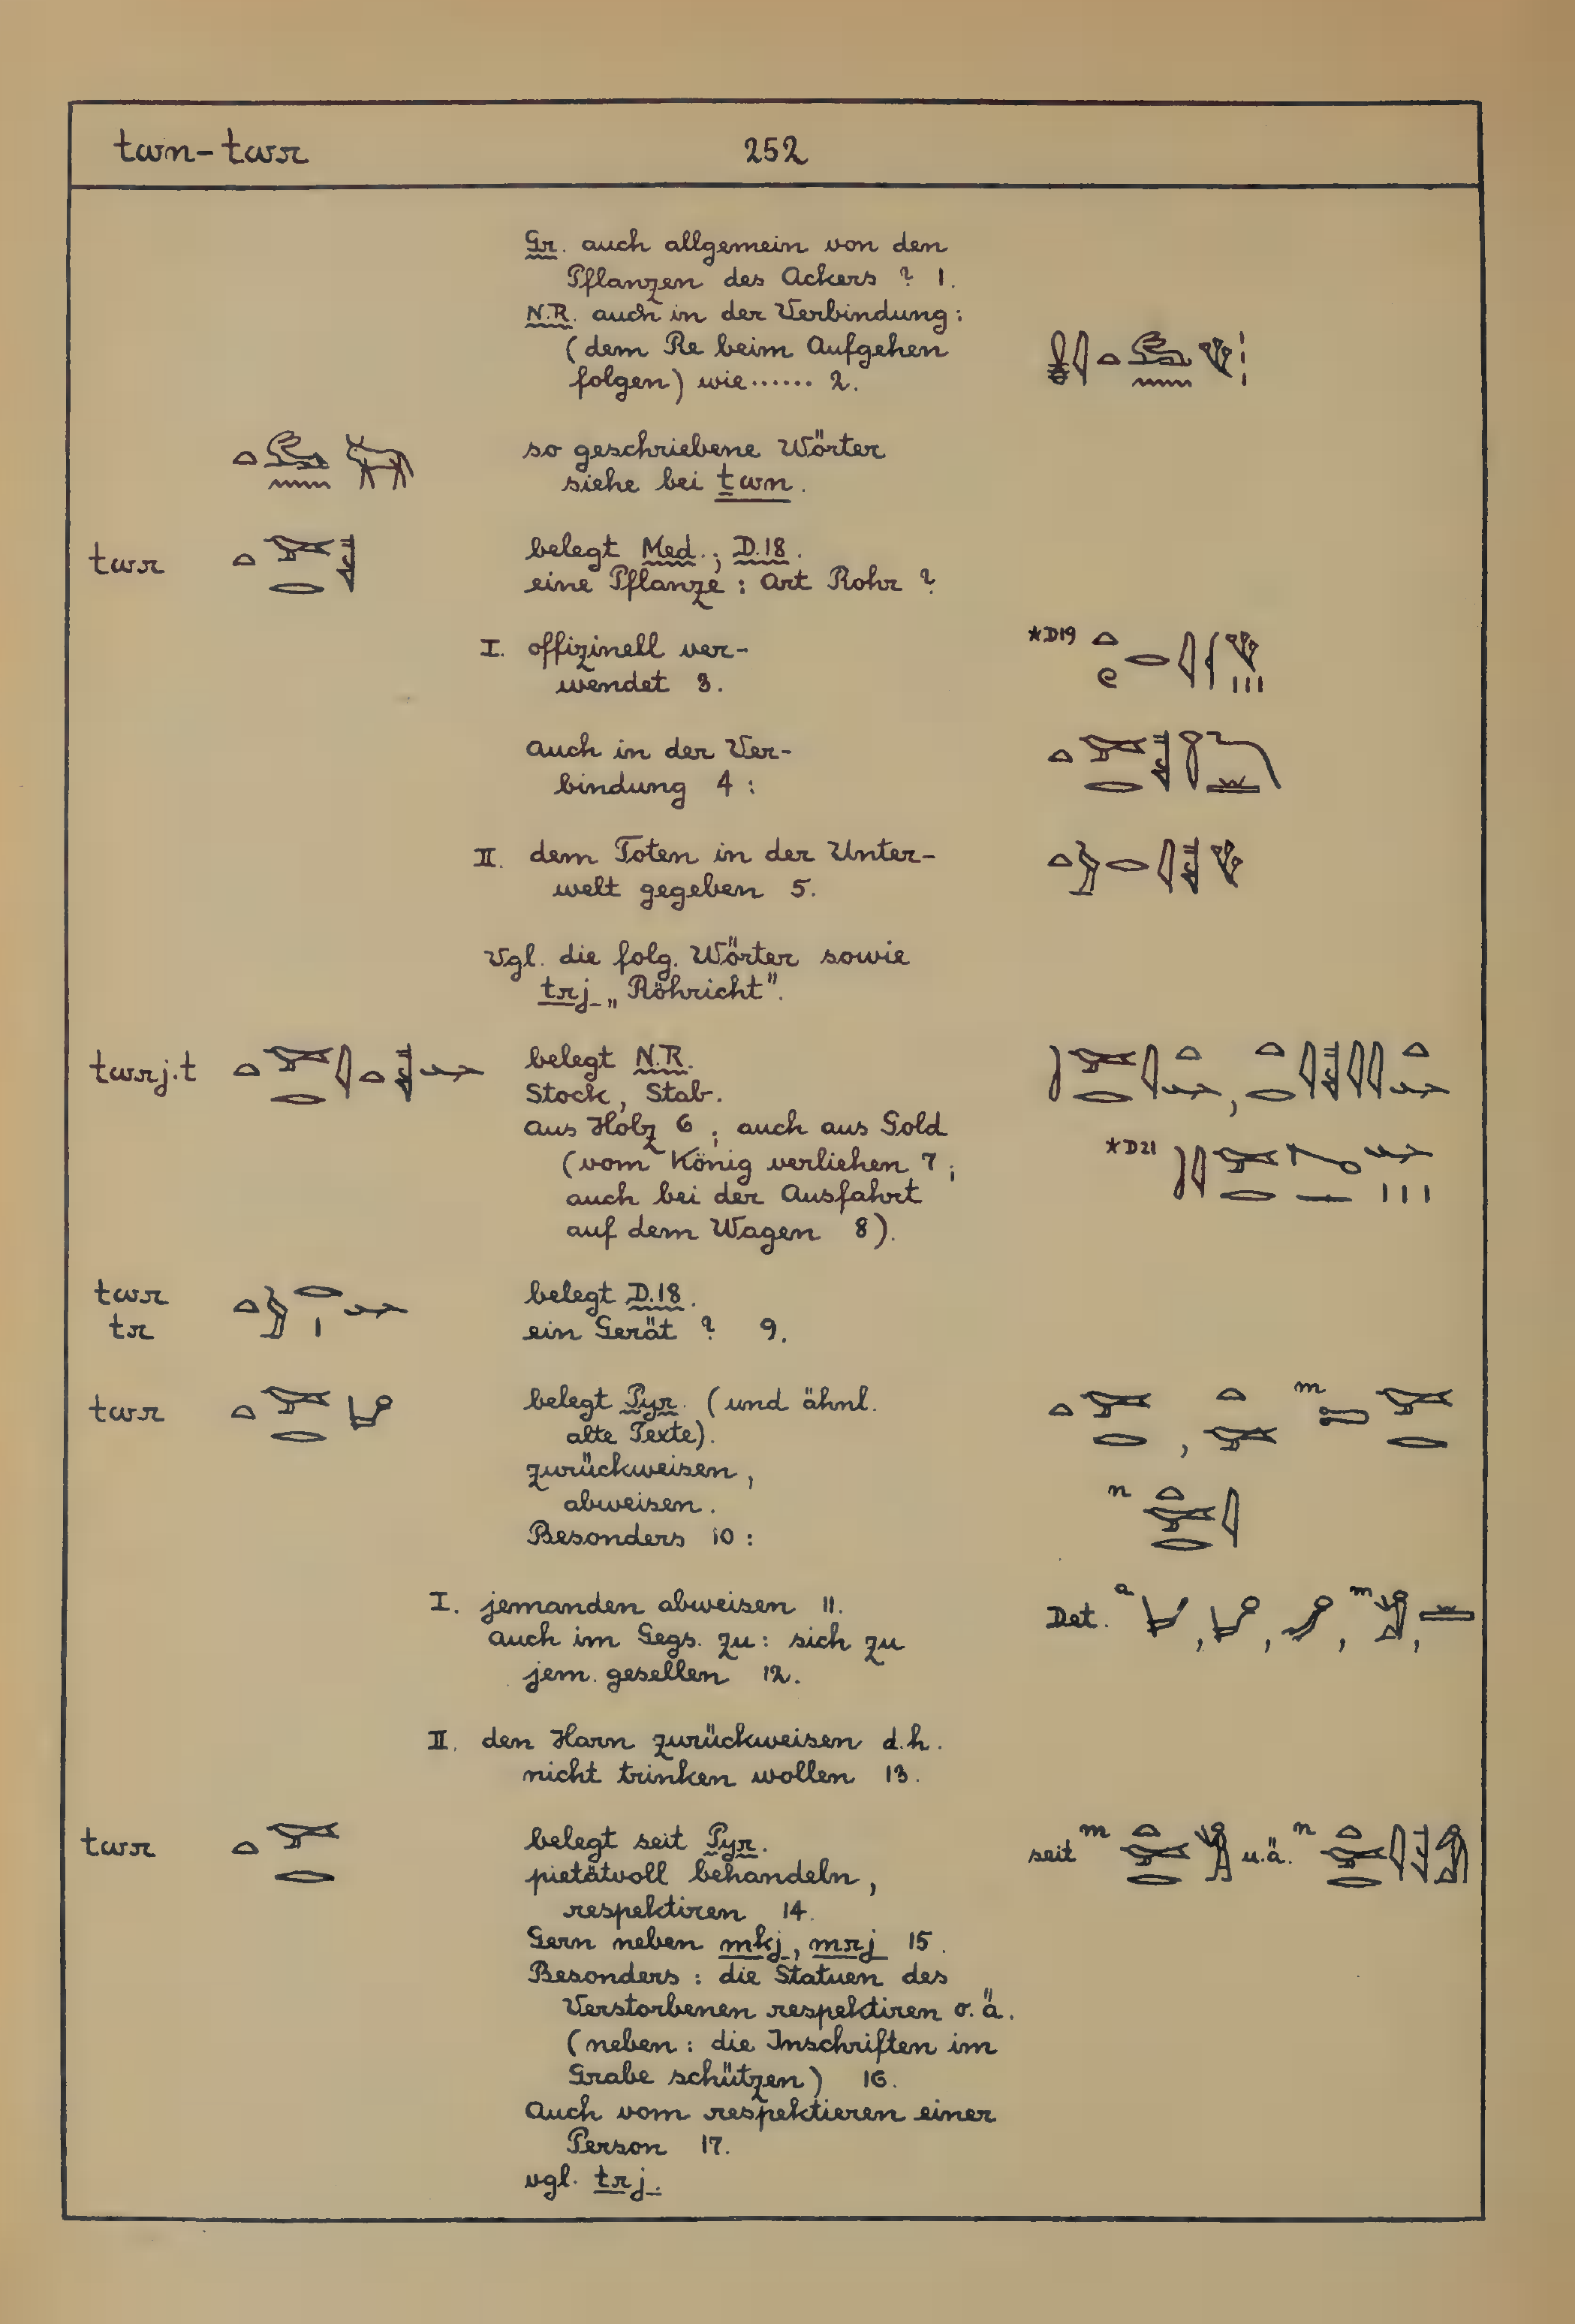 twn - twr 252
Gr. auch allgemein von den
Pflanzen des Ackers ? 1.
N.R. auch in der Verbindung:
(dem Re beim Aufgehen
folgen) wie...... 2.
so geschriebene Wörter
siehe bei ṯwn.
twr belegt Med.; D.18.
eine Pflanze: Art Rohr ?
I. offizinell ver-
wendet 3.
*D19
Auch in der Ver-
bindung 4:
II. dem Toten in der Unter-
welt gegeben 5.
Vgl. die folg. Wörter sowie
trj „Röhricht".
twrj.t belegt N.R.
Stock, Stab.
aus Holz 6; auch aus Gold
(vom König verliehen 7;
*D21
auch bei der Ausfahrt
auf dem Wagen 8).
twr belegt D.18.
tr ein Gerät ? 9.
twr belegt Pyr. (und ähnl.
alte Texte).
m
zurückweisen,
abweisen.
n
Besonders 10:
I. jemanden abweisen 11.
Det. a , , , m ,
auch im Gegs. zu: sich zu
jem. gesellen 12.
II. den Harn zurückweisen d.h.
nicht trinken wollen 13.
twr belegt seit Pyr.
seit m u.ä. n
pietätvoll behandeln,
respektiren 14.
Gern neben mkj, mrj 15.
Besonders: die Statuen des
Verstorbenen respektiren o.ä.
(neben: die Inschriften im
Grabe schützen) 16.
Auch vom respektieren einer
Person 17.
vgl. trj.